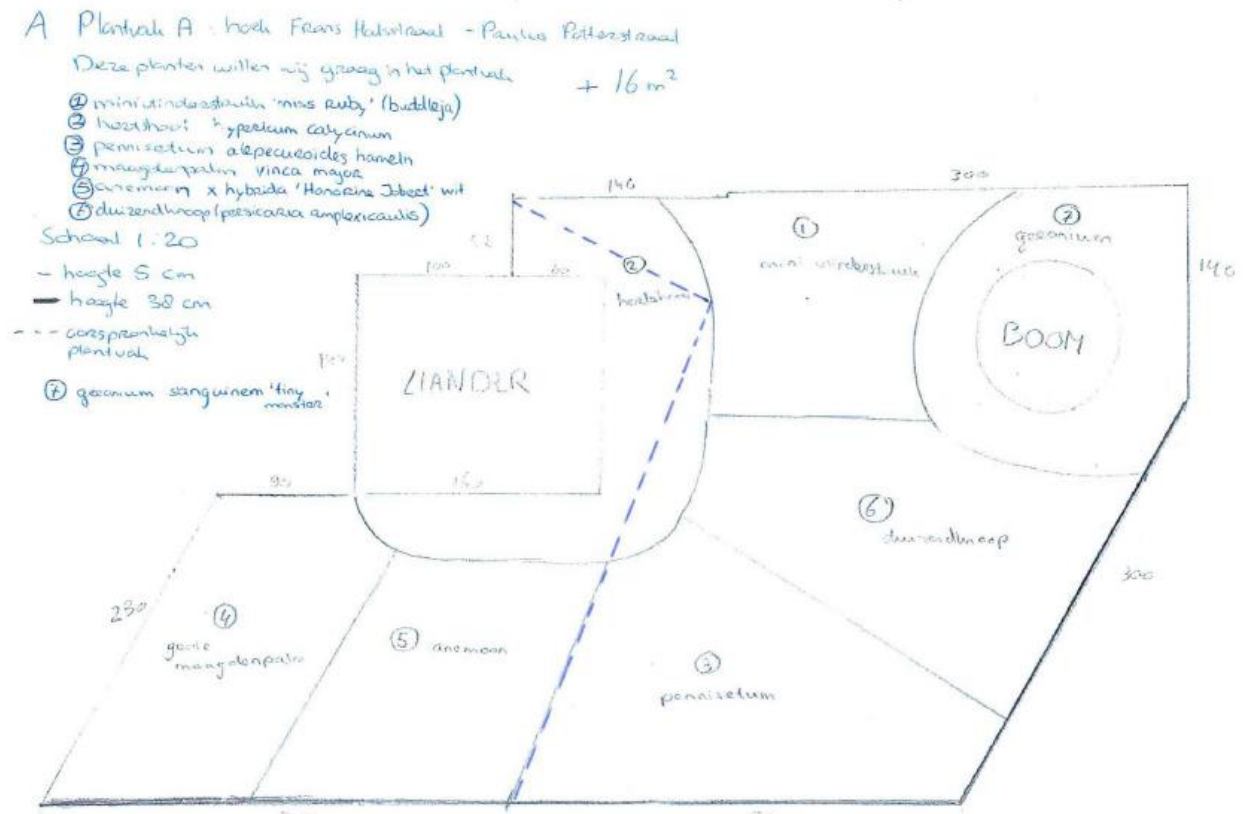 A Plantvak A : hoek Frans Halsstraat - Paulus Potterstraat
Deze planten willen wij graag in het plantvak
+ 16 m²
① mini vlinderstruik 'miss Ruby' (buddleja)
② hertshooi hypericum calycinum
③ pennisetum alepecuroides hameln
④ maagdenpalm vinca major
⑤ anemoon x hybrida 'Honorine Jobert' wit
⑦ duizendknoop (persicaria amplexicaulis)
Schaal 1:20
- hoogte 5 cm
— hoogte 38 cm
--- oorspronkelijk
plantvak
⑦ geranium sanguinem 'tiny
monster'
140
300
①
mini vlinderstruik
⑦
geranium
140
100
60
②
hertshooi
BOOM
LIANDER
90
160
⑥
duizendknoop
300
230
④
grote
maagdenpalm
⑤ anemoon
③
pennisetum